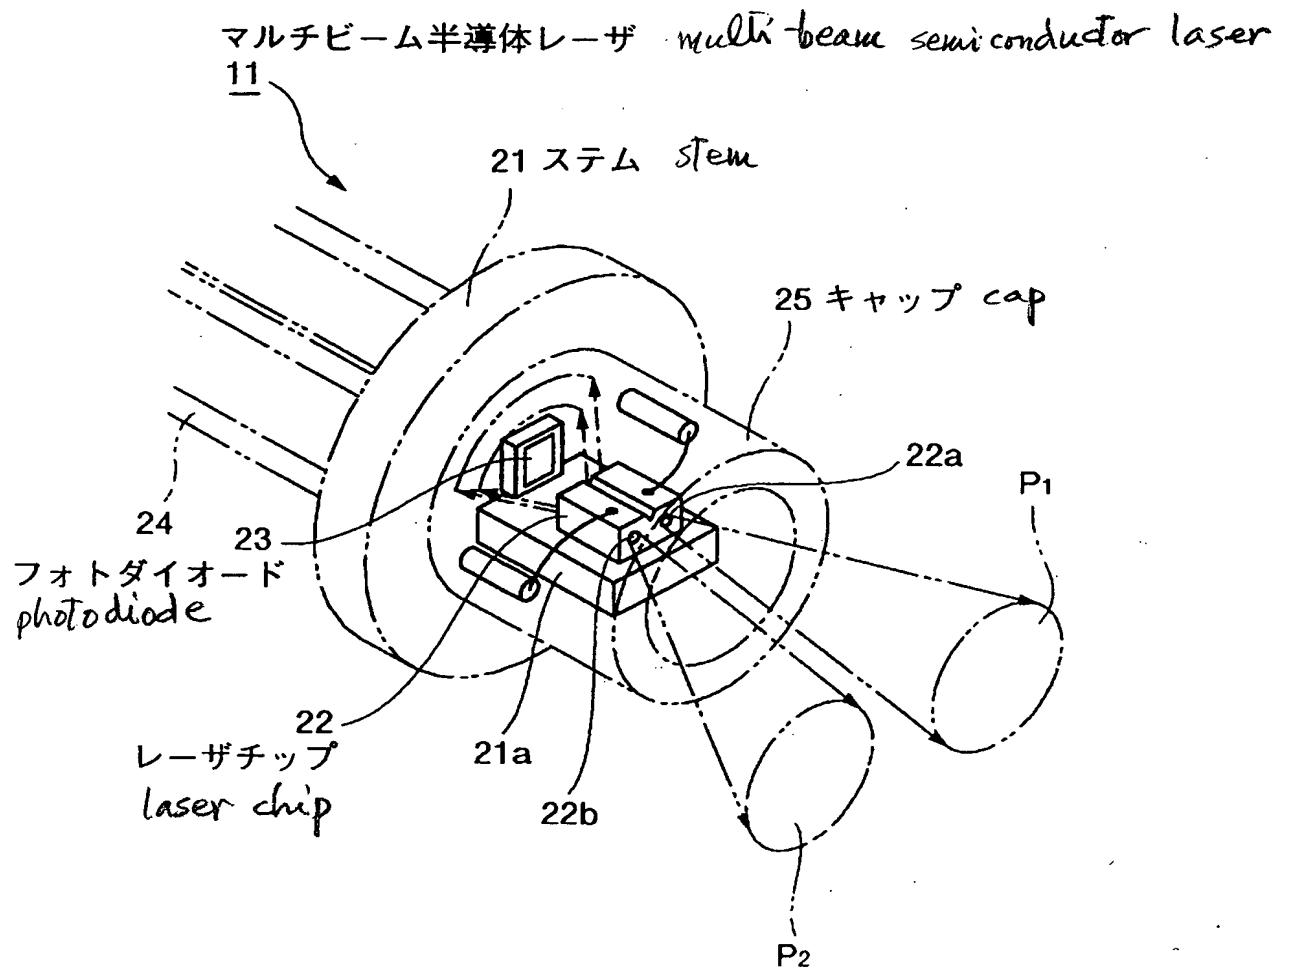 マルチビーム半導体レーザ multi-beam semiconductor laser
11
21 ステム stem
25 キャップ cap
22a
P1
24
23
フォトダイオード
photodiode
22
レーザチップ
laser chip
21a
22b
P2